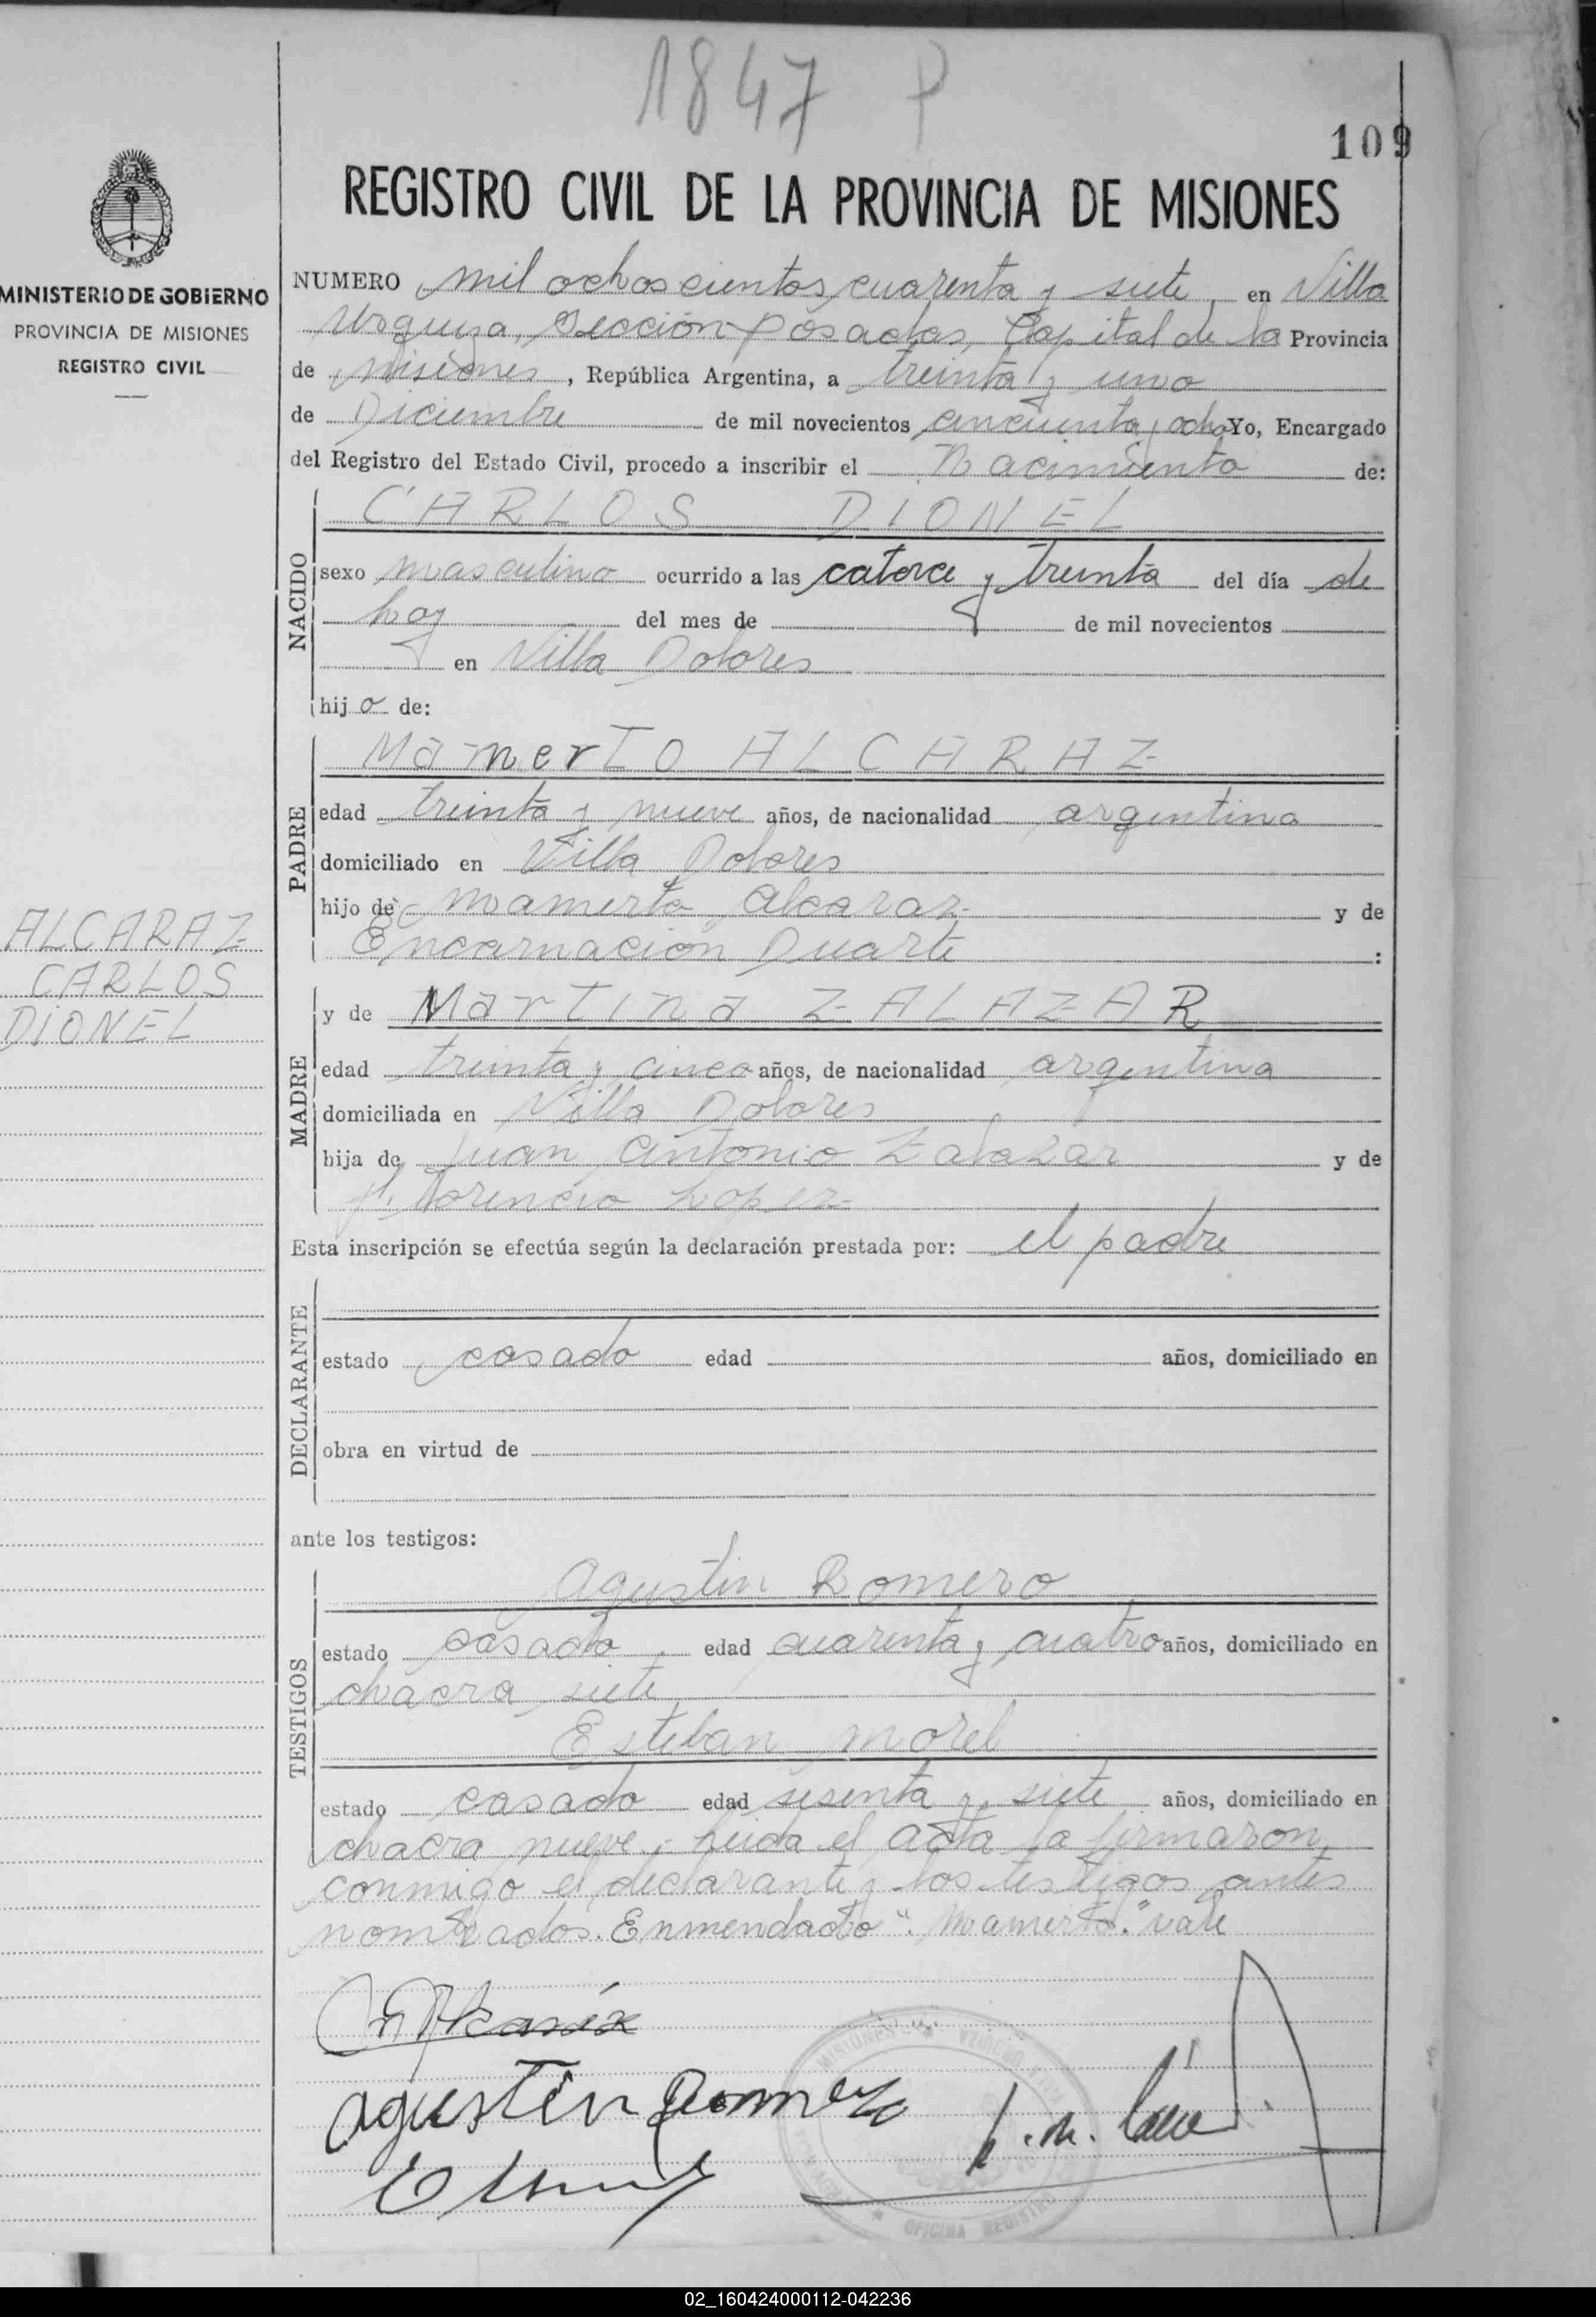 1847 P
109
MINISTERIO DE GOBIERNO
PROVINCIA DE MISIONES
REGISTRO CIVIL
ALCARAZ
CARLOS
DIONEL
REGISTRO CIVIL DE LA PROVINCIA DE MISIONES
NUMERO mil ochoscientos cuarenta y siete, en Villa
Urquiza, Sección Posadas, Capital de la Provincia
de Misiones, República Argentina, a treinta y uno
de Diciembre de mil novecientos cincuenta y ocho Yo, Encargado
del Registro del Estado Civil, procedo a inscribir el Nacimiento de:
NACIDO
CARLOS DIONEL
sexo masculino ocurrido a las catorce y treinta del día de
hoy del mes de de mil novecientos
en Villa Dolores
hijo de:
PADRE
Mamerto ALCARAZ
edad treinta y nueve años, de nacionalidad argentina
domiciliado en Villa Dolores
hijo de Mamerto Alcaraz y de
Encarnación Duarte :
MADRE
y de Martina ZALAZAR
edad treinta y cinco años, de nacionalidad argentina
domiciliada en Villa Dolores
hija de Juan Antonio Zalazar y de
Lopez
Esta inscripción se efectúa según la declaración prestada por: el padre
DECLARANTE
estado casado edad años, domiciliado en
obra en virtud de
ante los testigos:
TESTIGOS
Agustin Romero
estado casado edad cuarenta y cuatro años, domiciliado en
chacra siete
Esteban Morel
estado casado edad sesenta y siete años, domiciliado en
chacra nueve.- Leida el acta la firmaron
conmigo el declarante y los testigos antes
nombrados. Enmendado "Mamerto" vale
Agustin Romero
MISIONES
VILLA URQUIZA
OFICINA REGISTRO
02_160424000112-042236